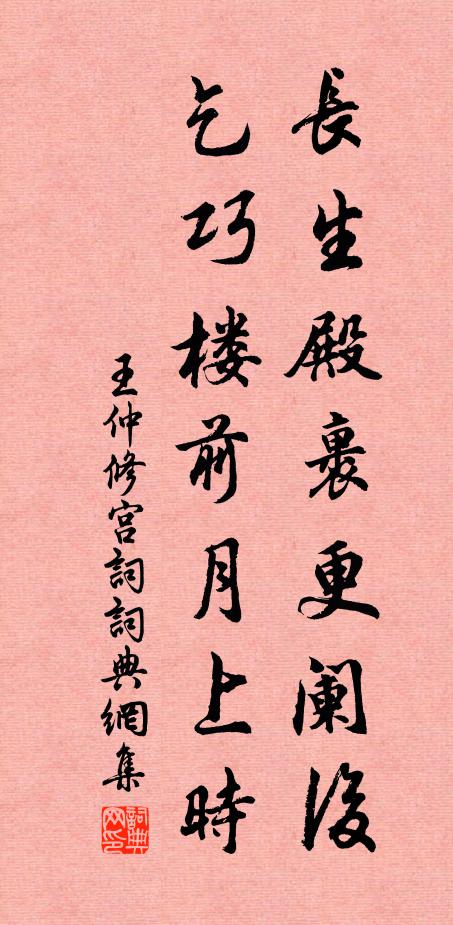 長生殿裏更闌後
乞巧楼前月上時
王仲修宮詞詞典網集
詞典网印